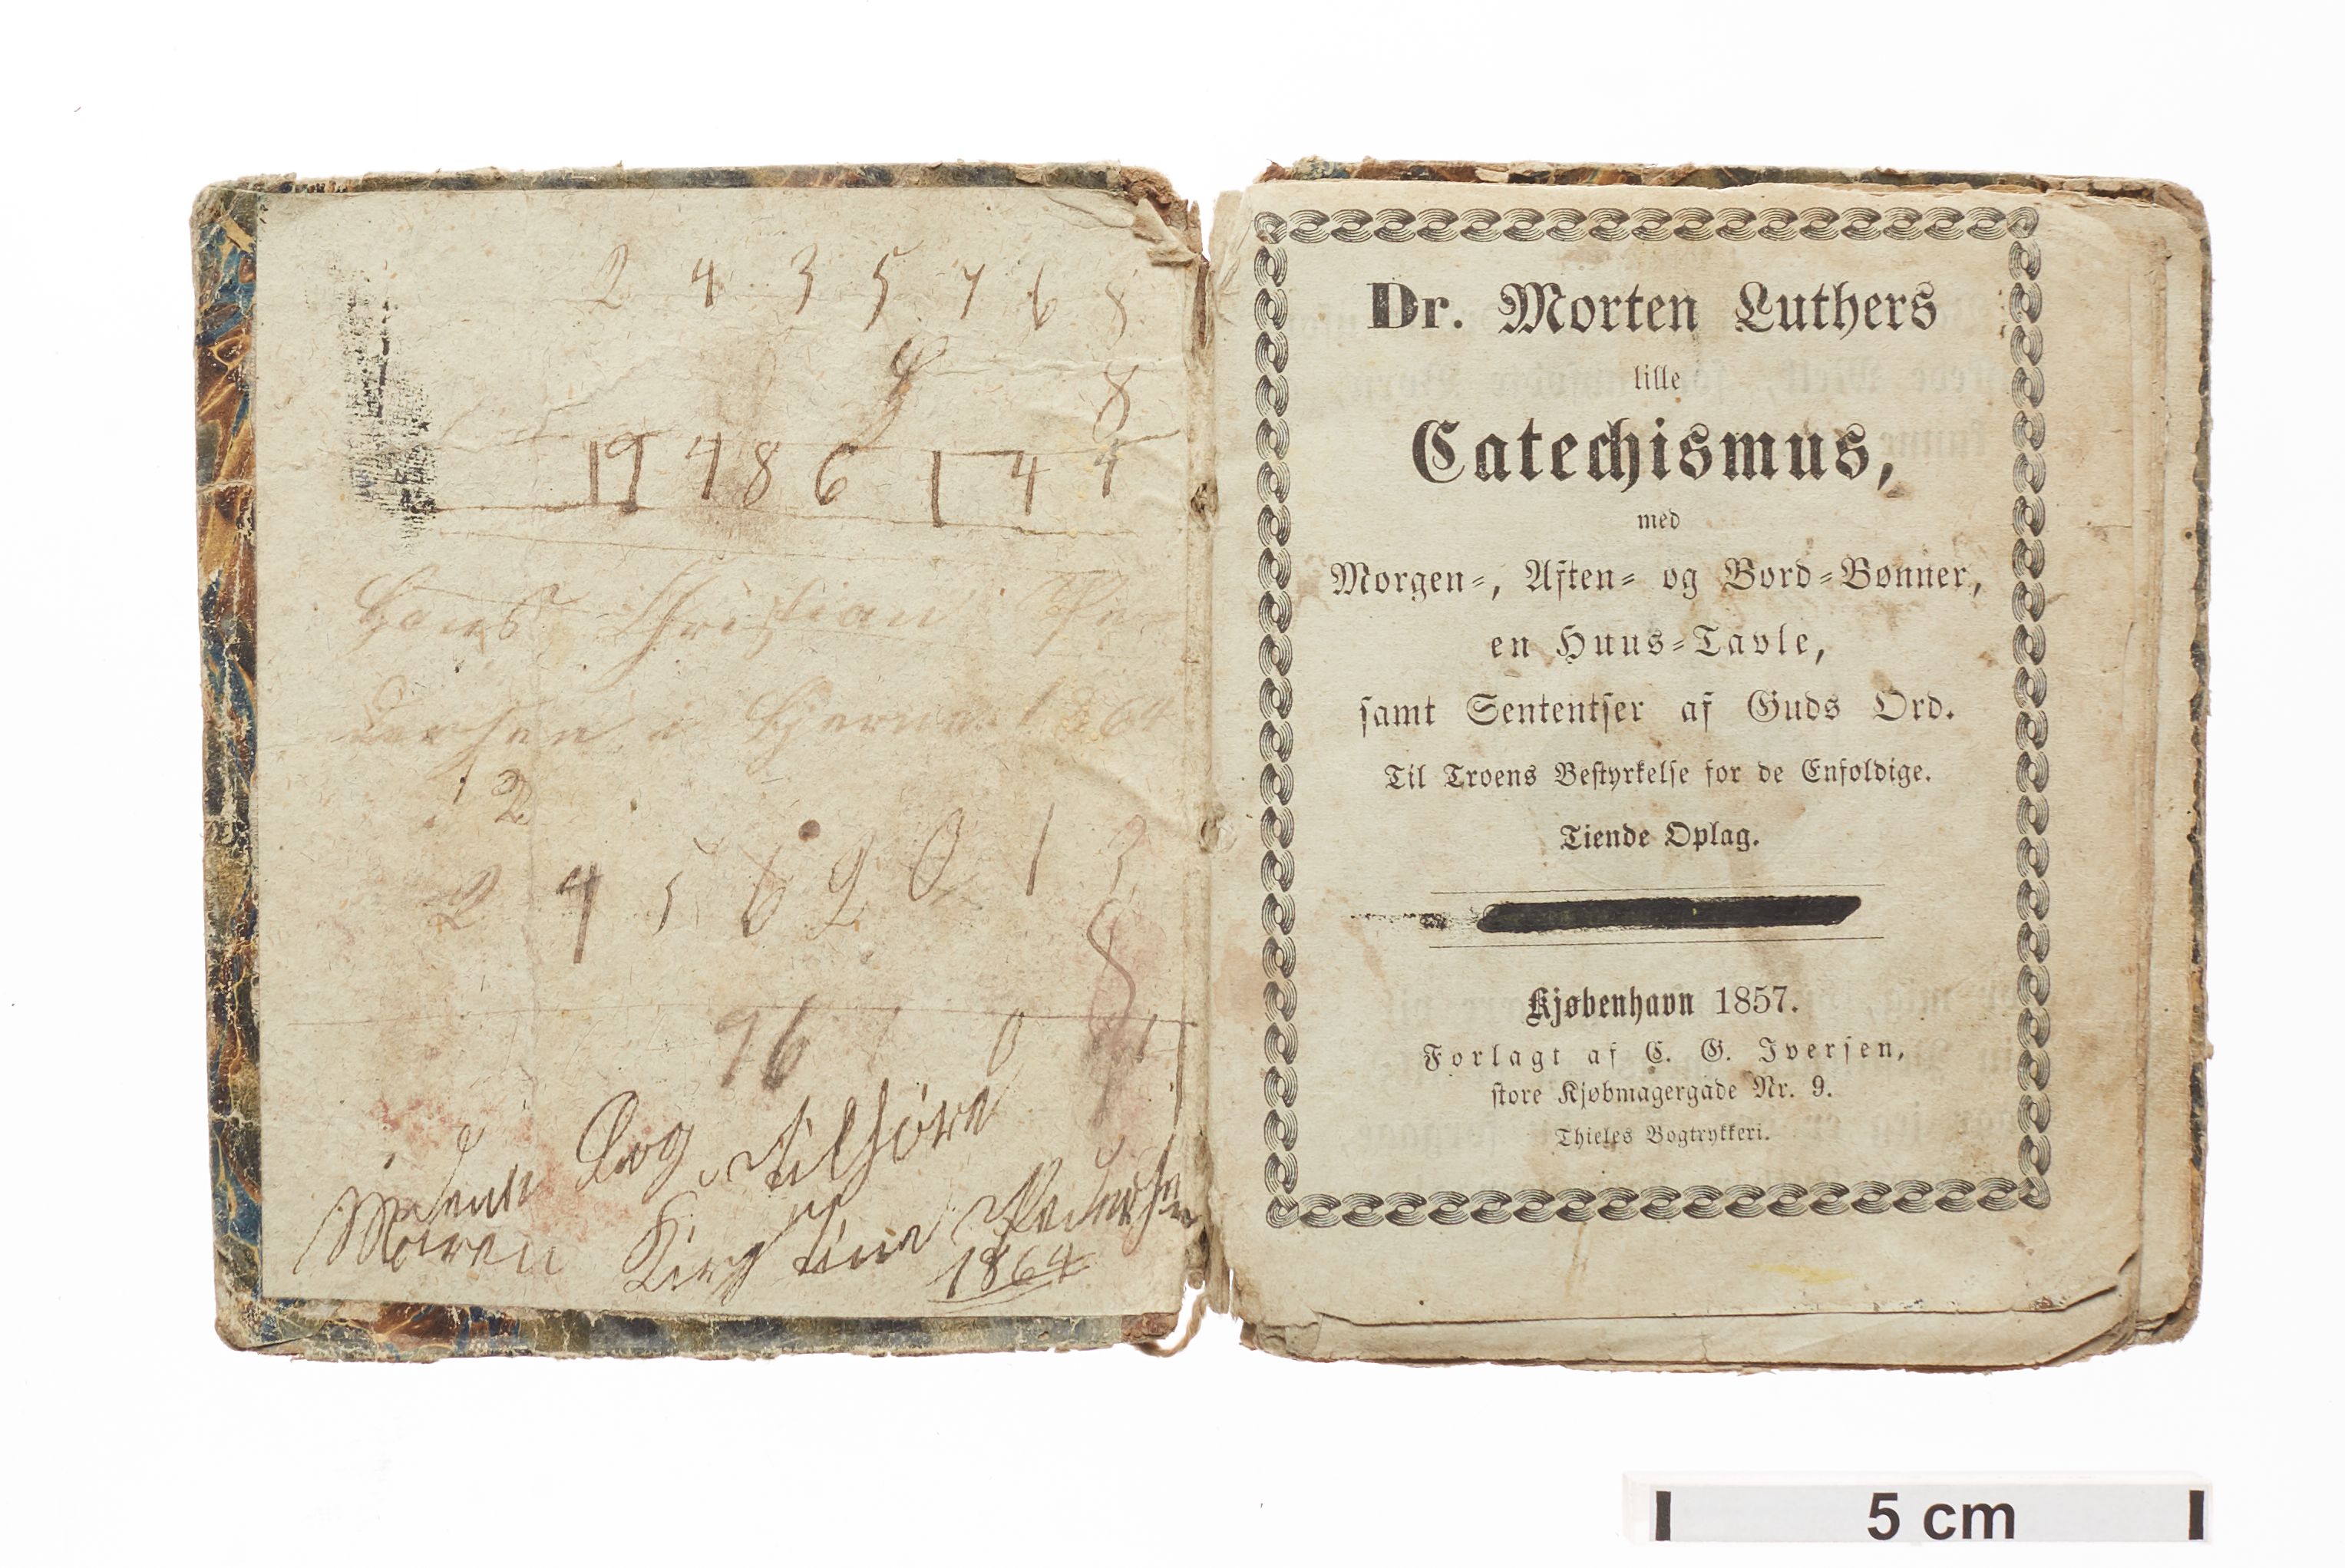 2 4 3 5 7 6 8
8
19 4 8 6 1 4 4
Hans Christian Pe
dersen i Hjerm 1864
12
2 4 5 6 2 0 1 3
8
denne Bog Tilhöre
Maren Kirstine Pedersen
1864
Dr. Morten Luthers
lille
Catechismus,
med
Morgen-, Aften- og Bord-Bønner,
en Huus-Tavle,
samt Sententser af Guds Ord.
Til Troens Bestyrkelse for de Enfoldige.
Tiende Oplag.
Kjøbenhavn 1857.
Forlagt af C. G. Iversen,
store Kjøbmagergade Nr. 9.
Thieles Bogtrykkeri.
5 cm